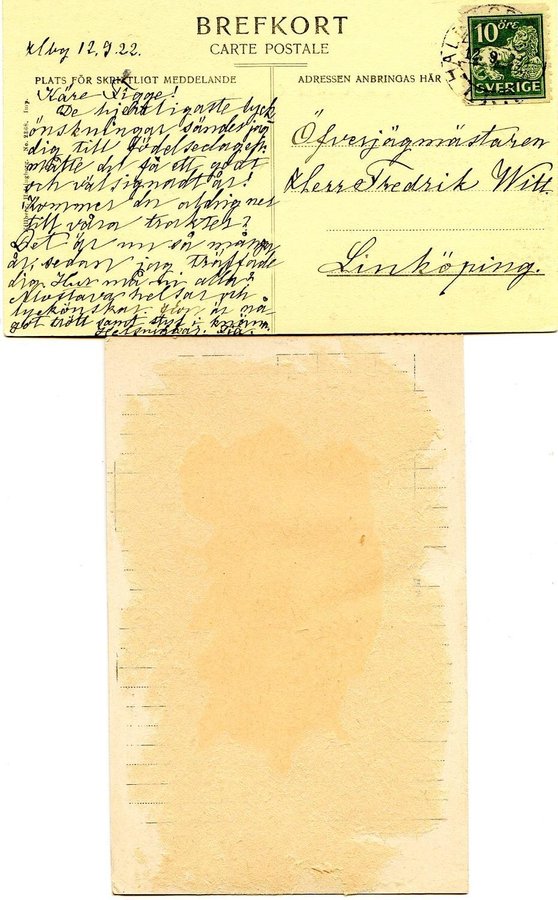 BREFKORT
CARTE POSTALE
12.9.22.
PLATS FÖR SKRIFTLIGT MEDDELANDE
ADRESSEN ANBRINGAS HÄR
10 ÖRE
SVERIGE
Käre Sigge!
De hjertligaste lyck
önskningar sändes jag
dig till födelsedagen.
måtte du få ett godt
och välsignadt år!
Kommer du aldrig ner
till våra trakter?
Det är nu så många
år sedan jag träffade
dig. Hur må ni alla?
helsar och
lyckönskar. är nå
got trött samt styf i knäna.
Öfverjägmästaren
Herr Fredrik Witt.
Linköping.